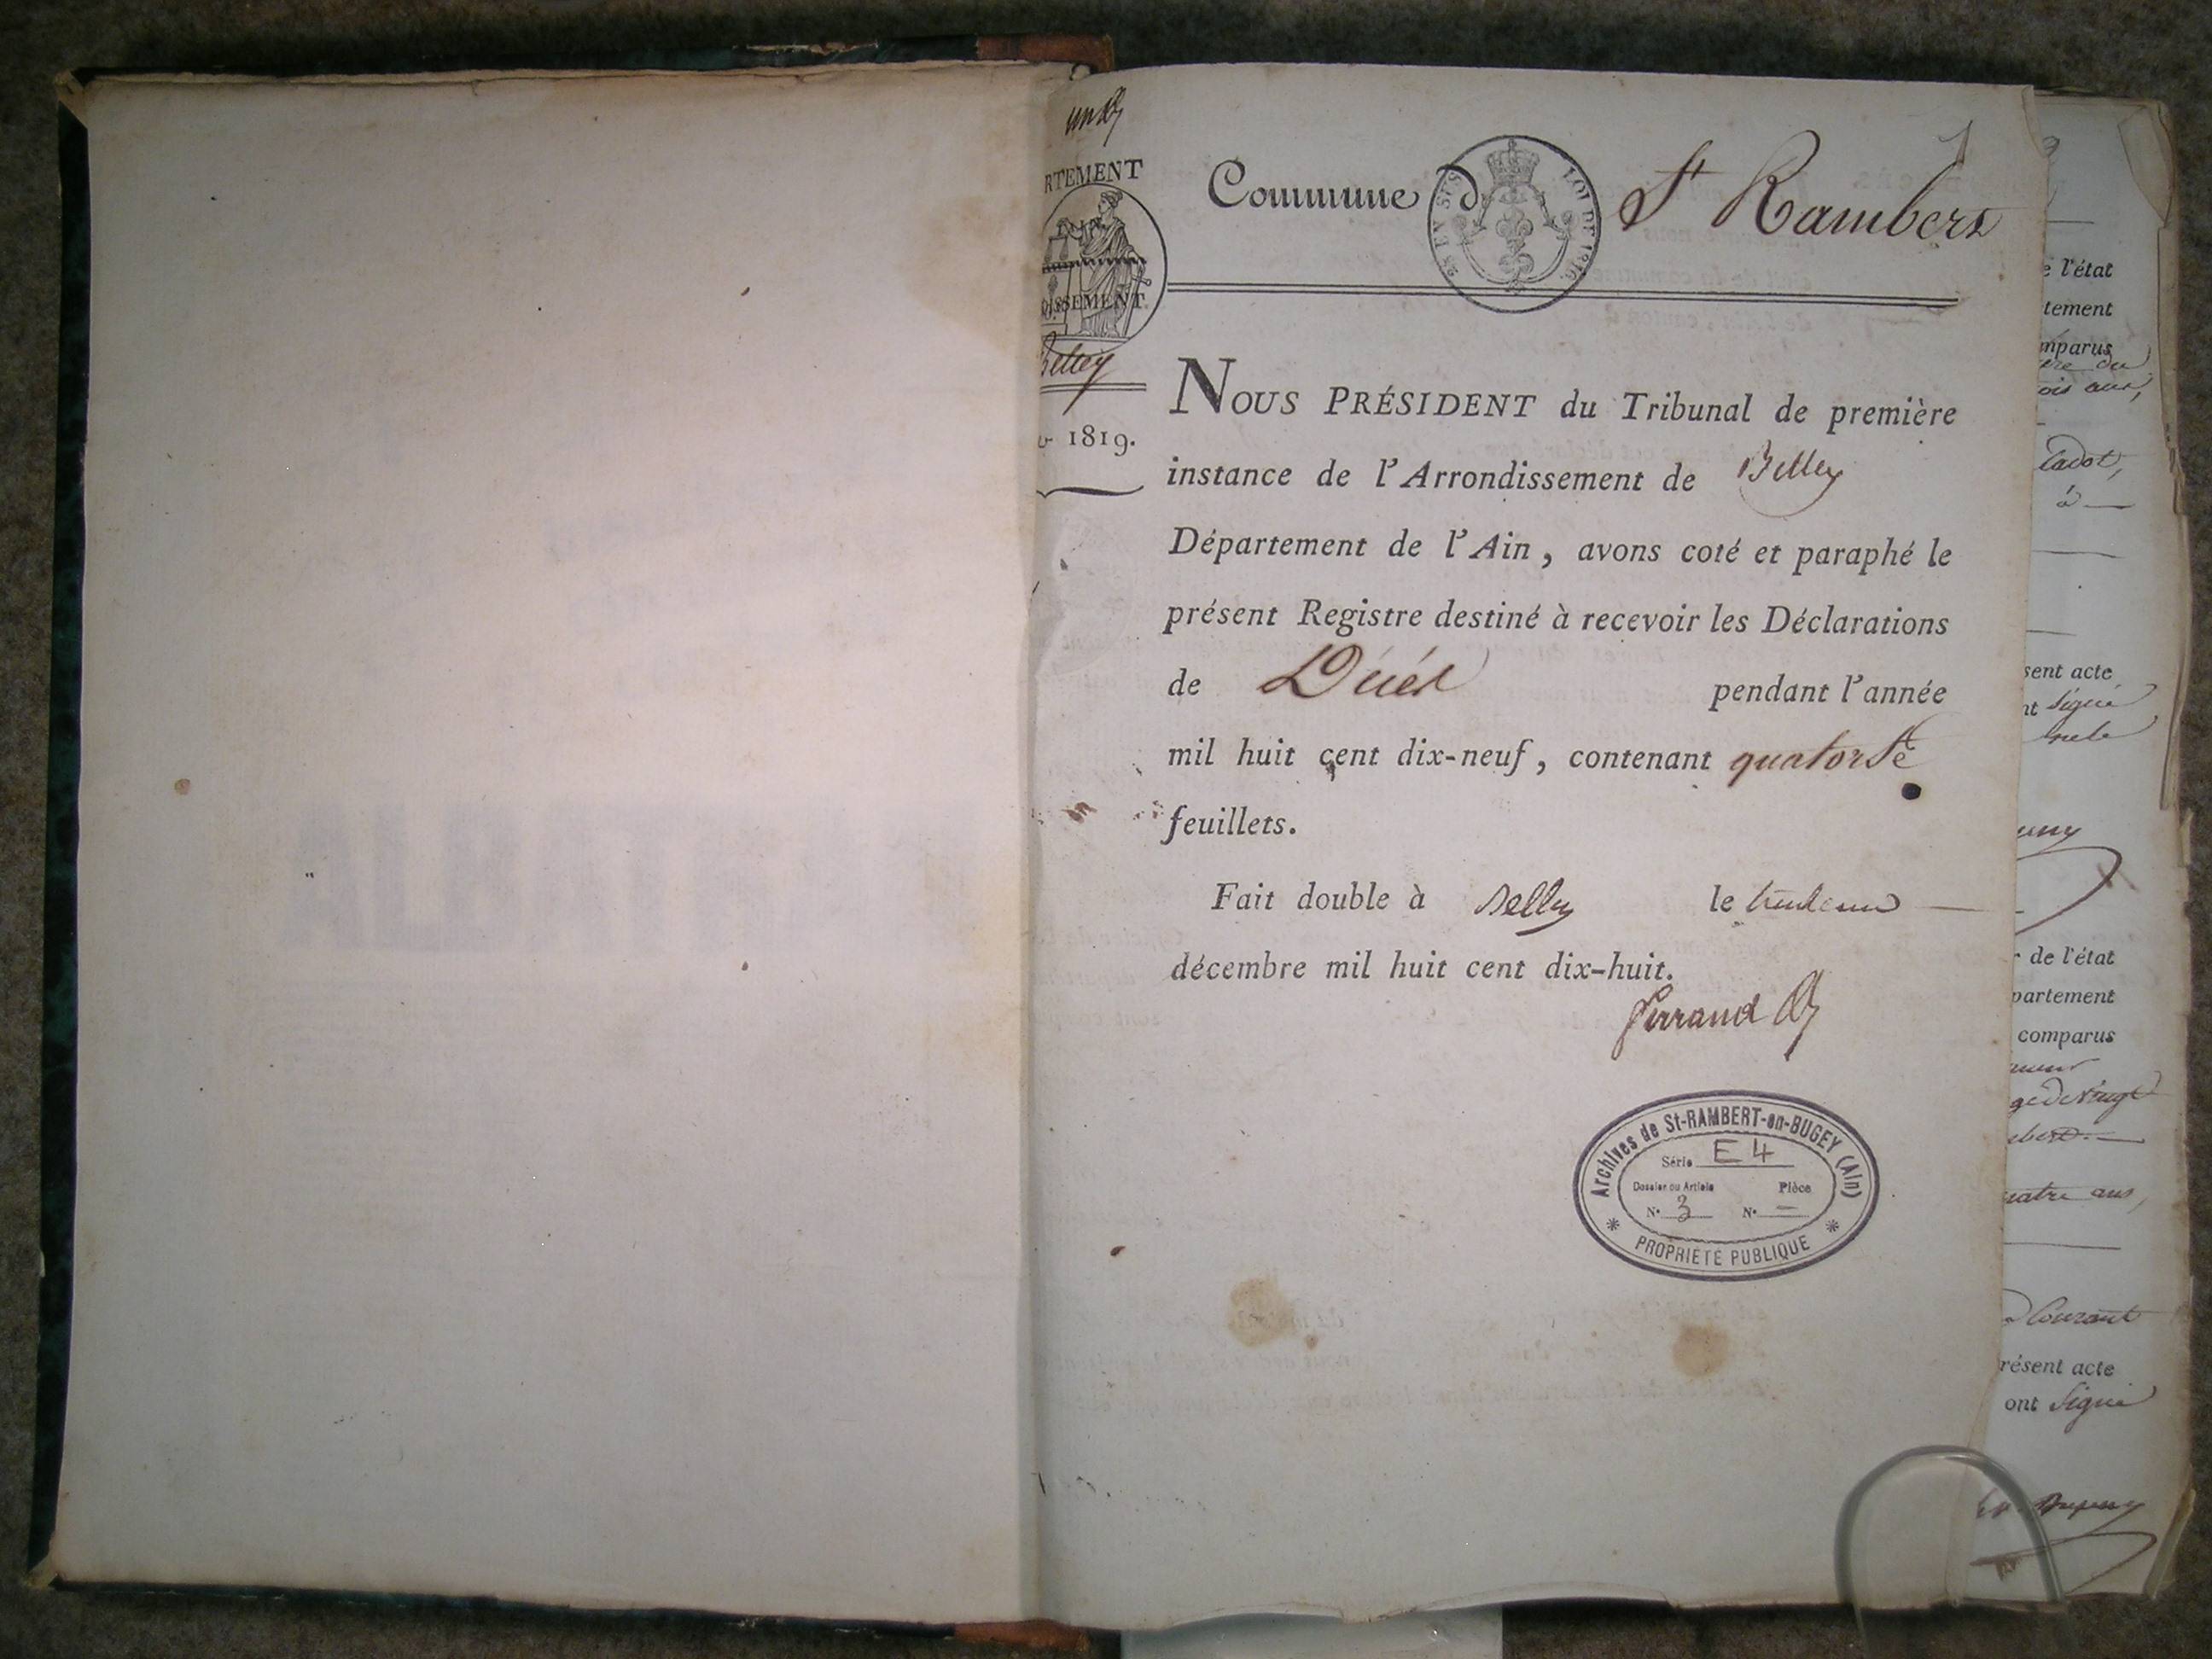 RTEMENT
Commune d St Rambert
25 EN SUS LOI DE 1816.
SSEMENT.
Belley
1819.
NOUS PRÉSIDENT du Tribunal de première
instance de l'Arrondissement de Belley
Département de l'Ain, avons coté et paraphé le
présent Registre destiné à recevoir les Déclarations
de Décès pendant l'année
mil huit cent dix-neuf, contenant quatorze
feuillets.
Fait double à Belley le trente un
décembre mil huit cent dix-huit.
Ferrand
Archives de St-RAMBERT-en-BUGEY (Ain)
Série E 4
Dossier ou Article Pièce
N° 3 N° —
PROPRIÉTÉ PUBLIQUE
e l'état
tement
mparus
ois ans,
à —
sent acte
nt signé
de l'état
partement
comparus
uatre ans,
Courant
résent acte
ont signé